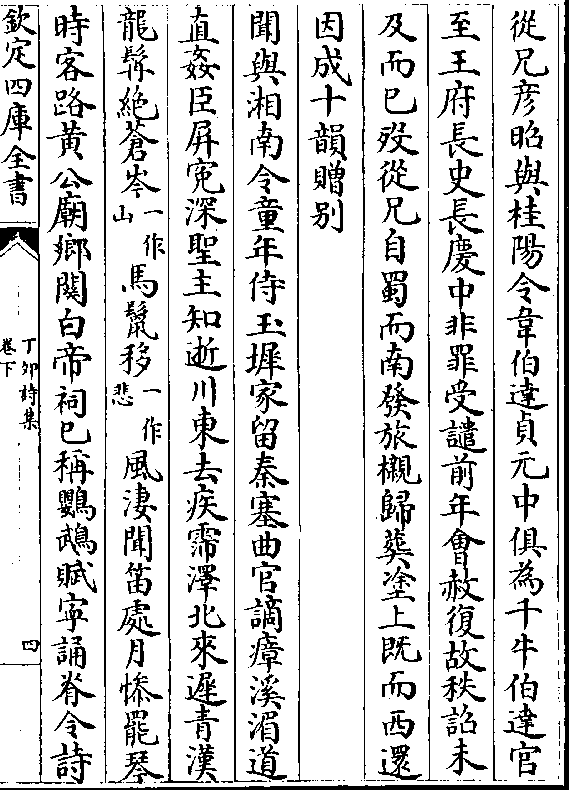 從兄彦昭與桂陽令韋伯達貞元中俱為千牛伯達官
至王府長史長慶中非罪受譴前年㑹赦復故秩詔未
及而已殁從兄自蜀而南發旅櫬歸葬塗上既而西還
因成十韻贈别
聞與湘南令童年侍玉墀家留秦塞曲官謫瘴溪湄道
直姦臣屏寃深聖主知逝川東去疾霈澤北來遲青漢
龍髯絶蒼岑一作山馬鬛移一作悲風淒聞笛處月慘罷琴
時客路黄公廟鄉關白帝祠已稱鸚鵡賦寧誦脊令詩
欽定四庫全書
丁卯詩集
卷下
四